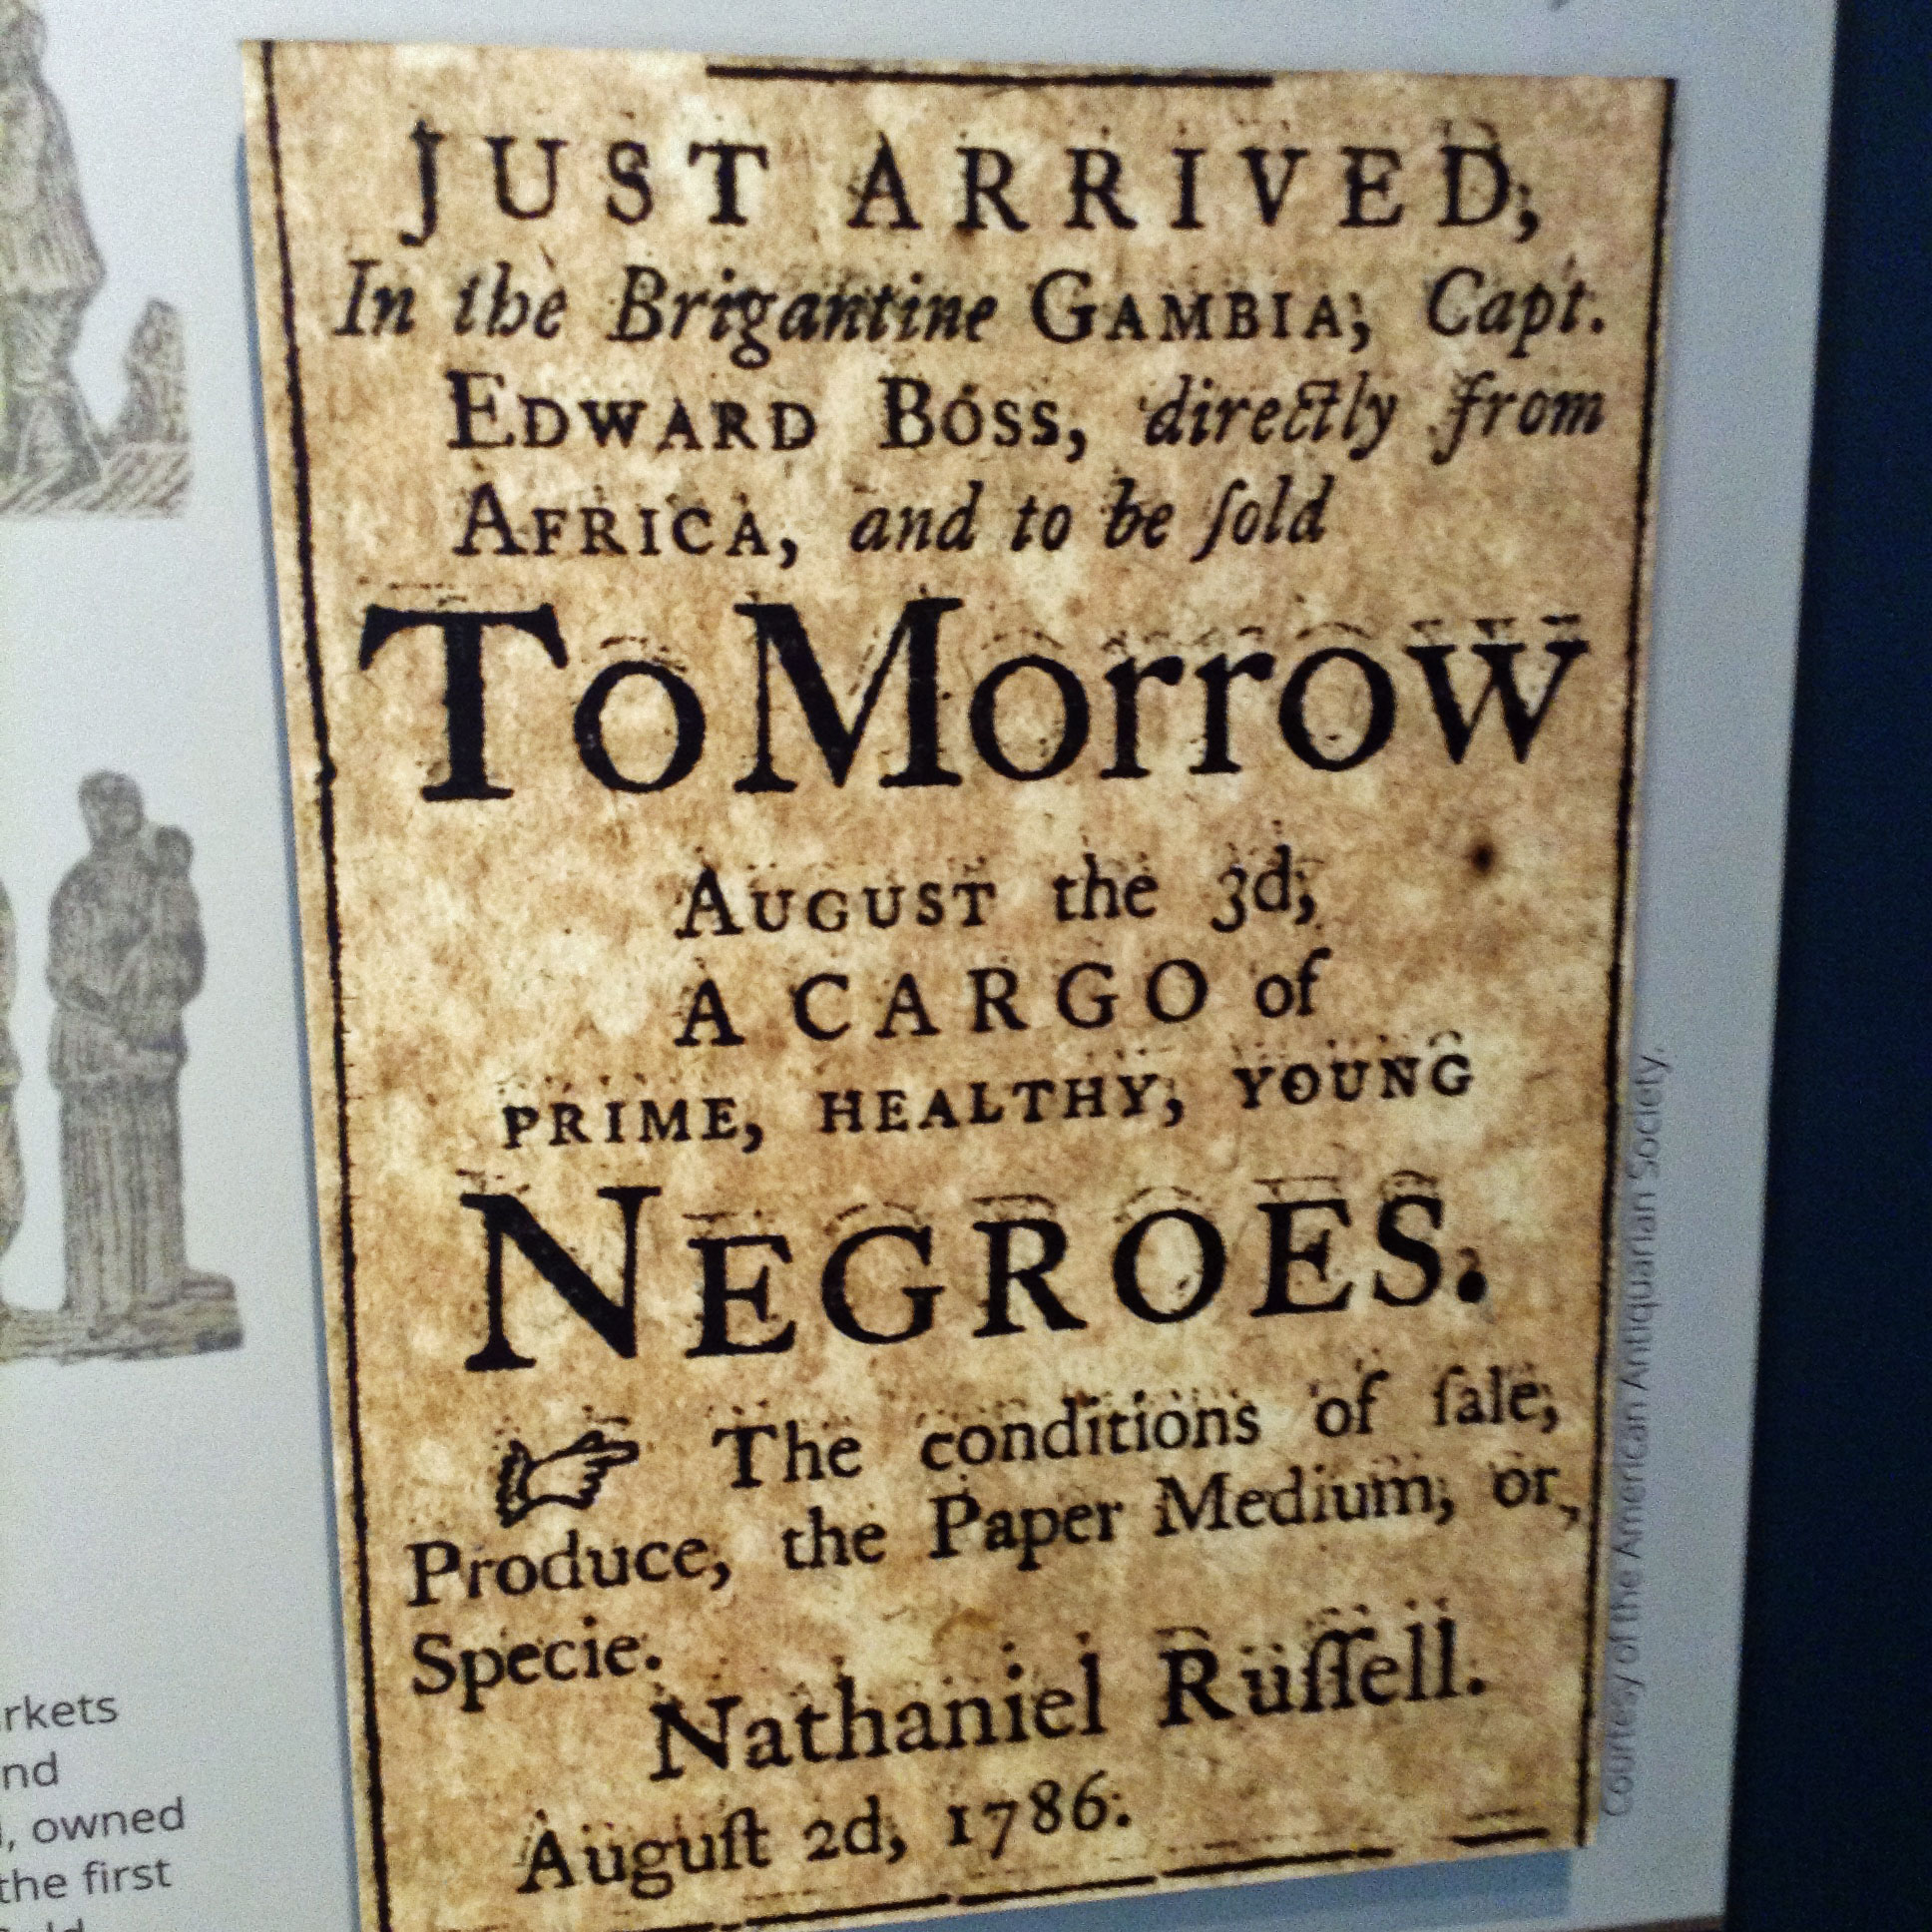 JUST ARRIVED,
In the Brigantine GAMBIA, Capt.
EDWARD BOSS, directly from
AFRICA, and to be ſold
ToMorrow
AUGUST the 3d,
A CARGO of
PRIME, HEALTHY, YOUNG
NEGROES.
☞ The conditions of ſale,
Produce, the Paper Medium, or,
Specie.
Nathaniel Ruſſell.
Auguſt 2d, 1786.
Courtesy of the American Antiquarian Society.
rkets
nd
, owned
the first